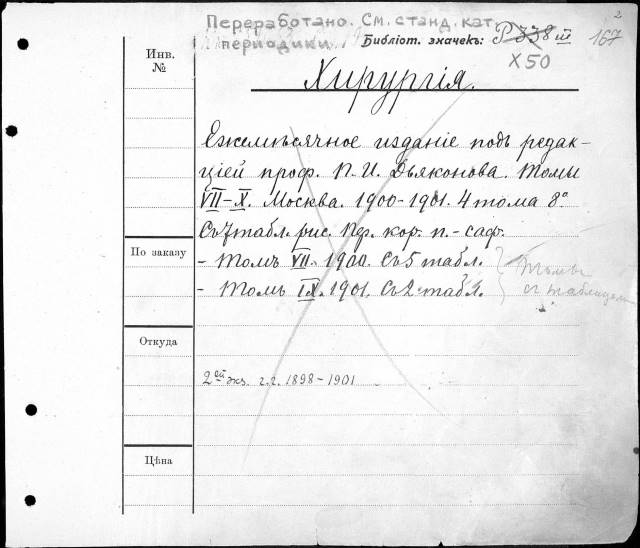 2
Переработано. См. станд. кат.
периодики
Библіот. значекъ: Р 338 III 167
Х50
Инв.
№
Хирургія.
Ежемѣсячное изданіе подъ редак-
ціей проф. П. И. Дьяконова. Томы
VII-X. Москва. 1900-1901. 4 тома 8º
Съ 7 табл. рис. Пф. кор. п.-саф.
По заказу
- Томъ VII. 1900. Съ 5 табл.
- Томъ IX. 1901. Съ 2 табл.
Томы
съ таблицами
Откуда
2ой экз. г.г. 1898-1901
Цѣна